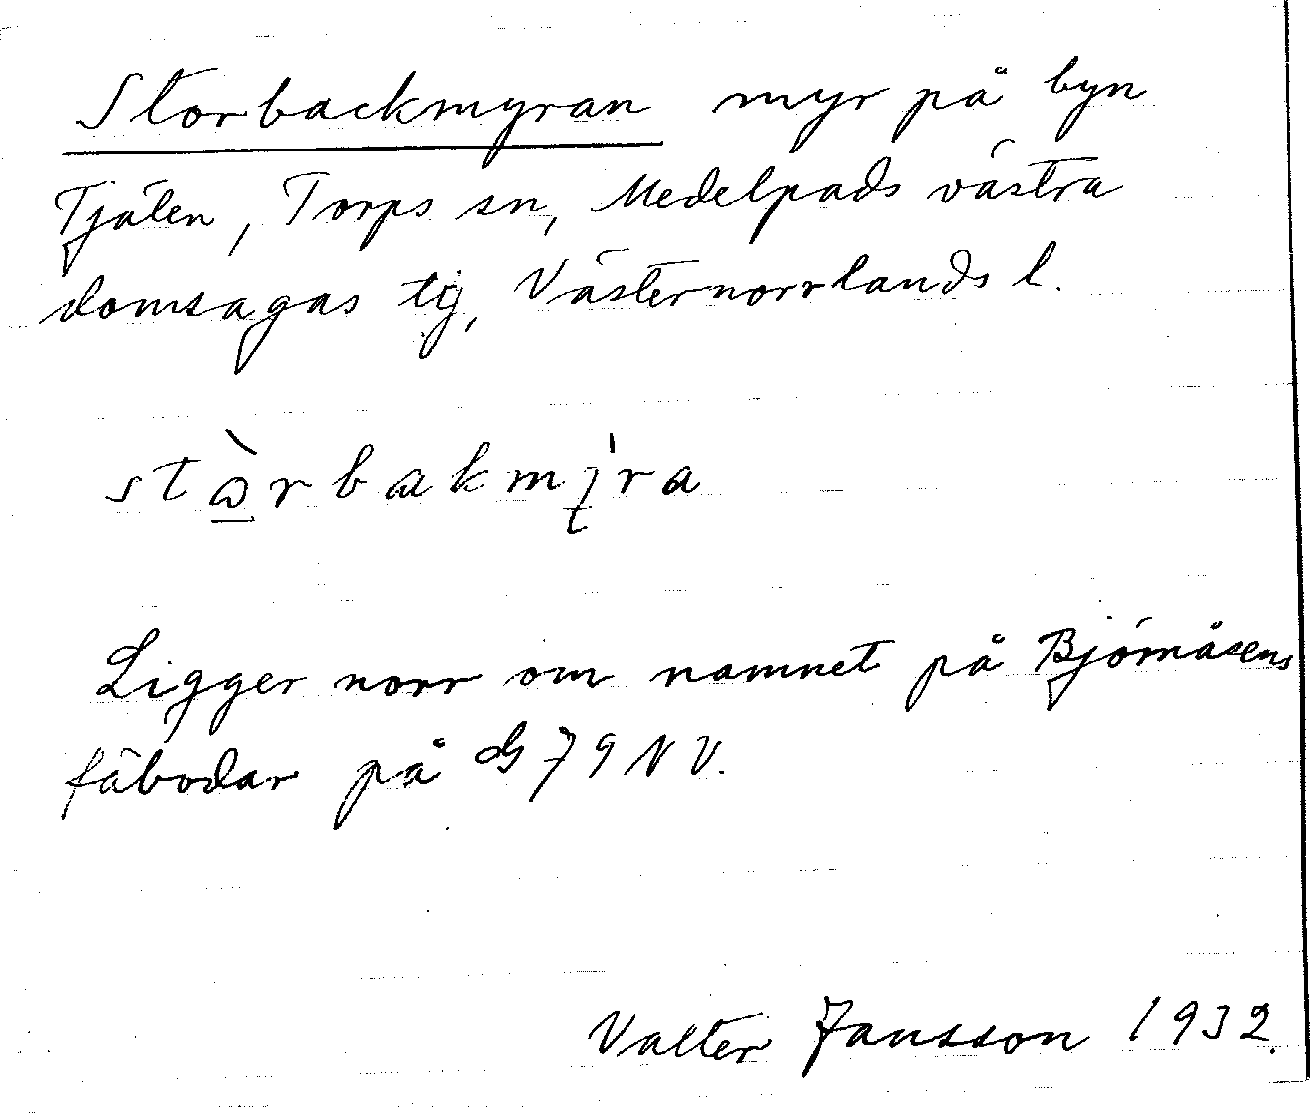 Storbackmyran myr på byn
Tjälen, Torps sn, Medelpads västra
domsagas tg, Västernorrlands l.
Ligger norr om namnet på Björnåsens
fäbodar på G 79 NV.
Valter Jansson 1932.